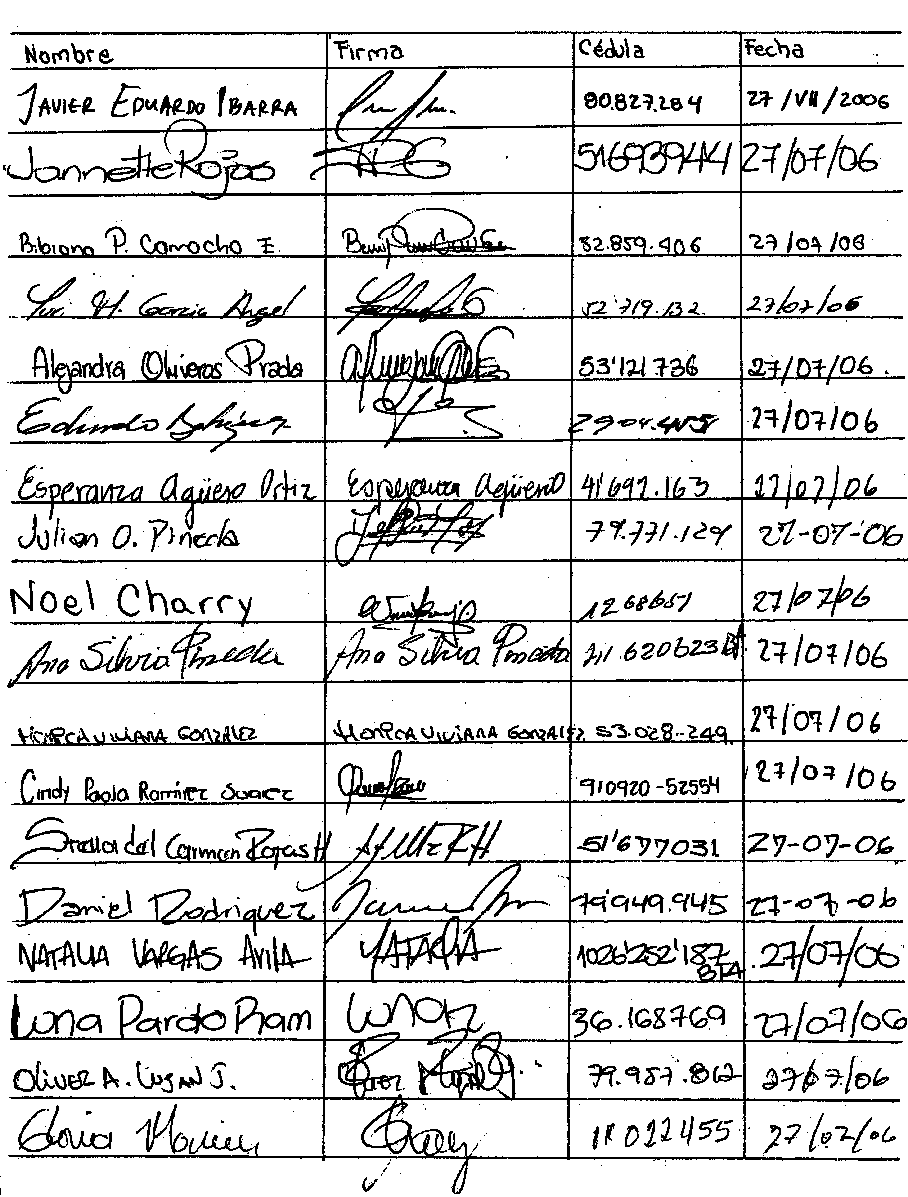 Nombre Firma Cédula Fecha
JAVIER EDUARDO IBARRA 80.827.284 27/VII/2006
Jannette Rojas 51693944 27/07/06
Bibiana P. Camacho E. 52.859.406 27/07/06
H. Garcia Angel 52'719.132 27/07/06
Alejandra Oliveros Prada 53'121736 27/07/06.
Eduardo 27/07/06
Esperanza Agüero Ortiz Esperanza Agüero 41'697.163 27/07/06
Julian O. Pineda 79.771.129 27-07-06
Noel Charry 1268651 27/07/06
Ana Silvia Pineda Ana Silvia Pineda 41.620623 27/07/06
MONICA VIVIANA GONZÁLEZ MONICA VIVIANA GONZÁLEZ 53.028-249. 27/07/06
Cindy Paola Ramírez Suarez 910920-52554 27/07/06
Stella del Carmen Rojas H 51'677031 27-07-06
Daniel Rodriguez 79'949.945 27-07-06
NATALIA VARGAS AVILA NATALIA 1026'252'187 BTA 27/07/06
Luna Pardo Ram Luna 36.168769 27/07/06
OLIVER A. LUJAN J. 79.987.862 27/07/06
Gloria 27/07/06